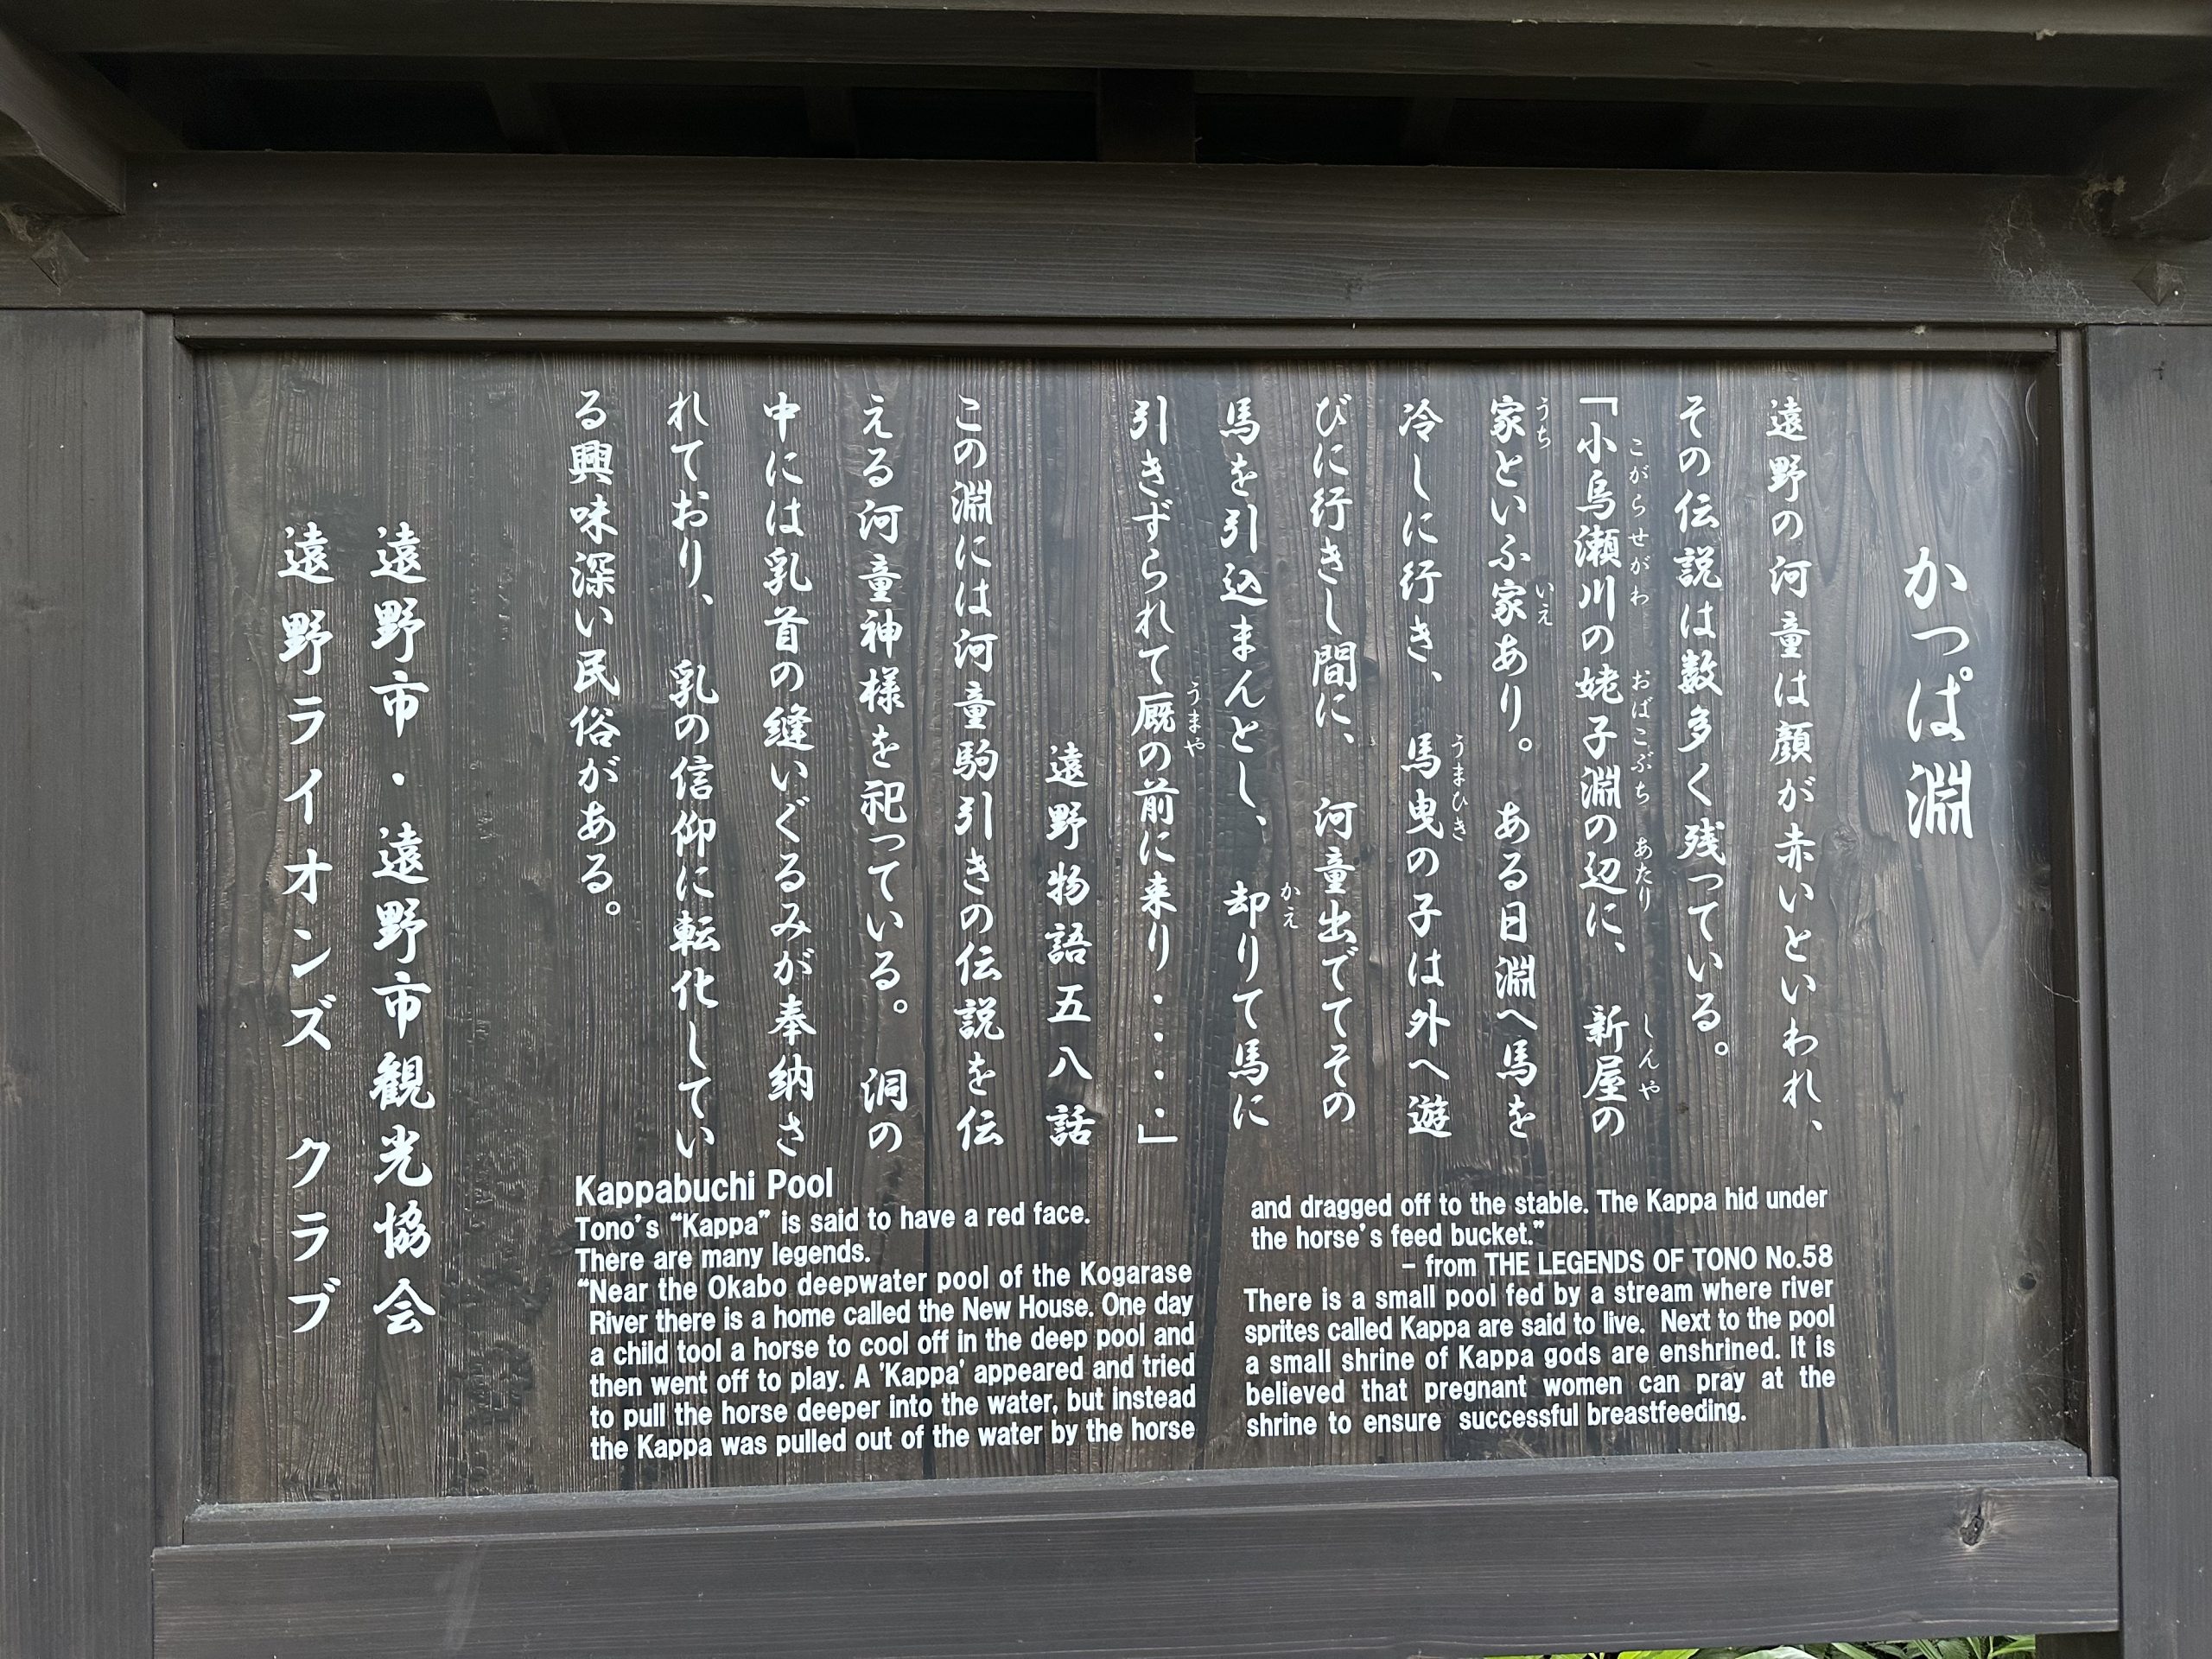 かっぱ淵
遠野の河童は顔が赤いといわれ、
その伝説は数多く残っている。
「小烏瀬川の姥子淵の辺に、新屋の
こがらせがわ おばこぶち あたり しんや
家といふ家あり。ある日淵へ馬を
うち いえ
冷しに行き、馬曳の子は外へ遊
うまひき
びに行きし間に、河童出でてその
馬を引込まんとし、却りて馬に
かえ
引きずられて厩の前に来り・・・・」
うまや
遠野物語五八話
この淵には河童駒引きの伝説を伝
える河童神様を祀っている。洞の
中には乳首の縫いぐるみが奉納さ
れており、乳の信仰に転化してい
る興味深い民俗がある。
遠野市・遠野市観光協会
遠野ライオンズ クラブ
Kappabuchi Pool
Tono's “Kappa” is said to have a red face.
There are many legends.
“Near the Okabo deepwater pool of the Kogarase
River there is a home called the New House. One day
a child tool a horse to cool off in the deep pool and
then went off to play. A 'Kappa' appeared and tried
to pull the horse deeper into the water, but instead
the Kappa was pulled out of the water by the horse
and dragged off to the stable. The Kappa hid under
the horse's feed bucket.”
– from THE LEGENDS OF TONO No.58
There is a small pool fed by a stream where river
sprites called Kappa are said to live. Next to the pool
a small shrine of Kappa gods are enshrined. It is
believed that pregnant women can pray at the
shrine to ensure successful breastfeeding.